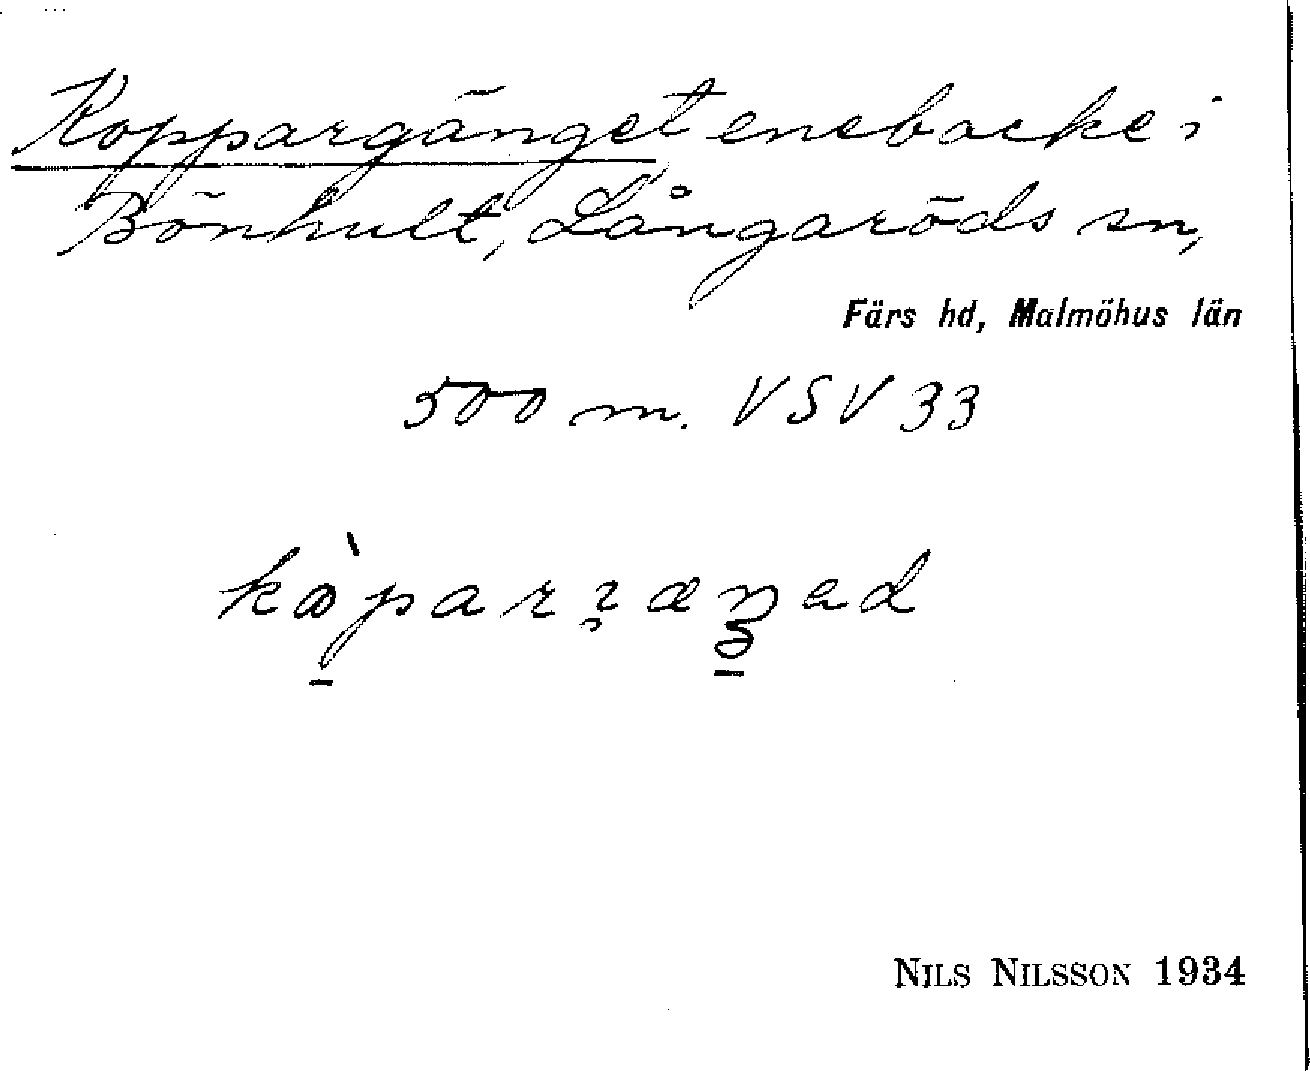 Koppargänget enebacke i
Bönhult, Långaröds sn,
Färs hd, Malmöhus län
500 m. VSV 33
NILS NILSSON 1934